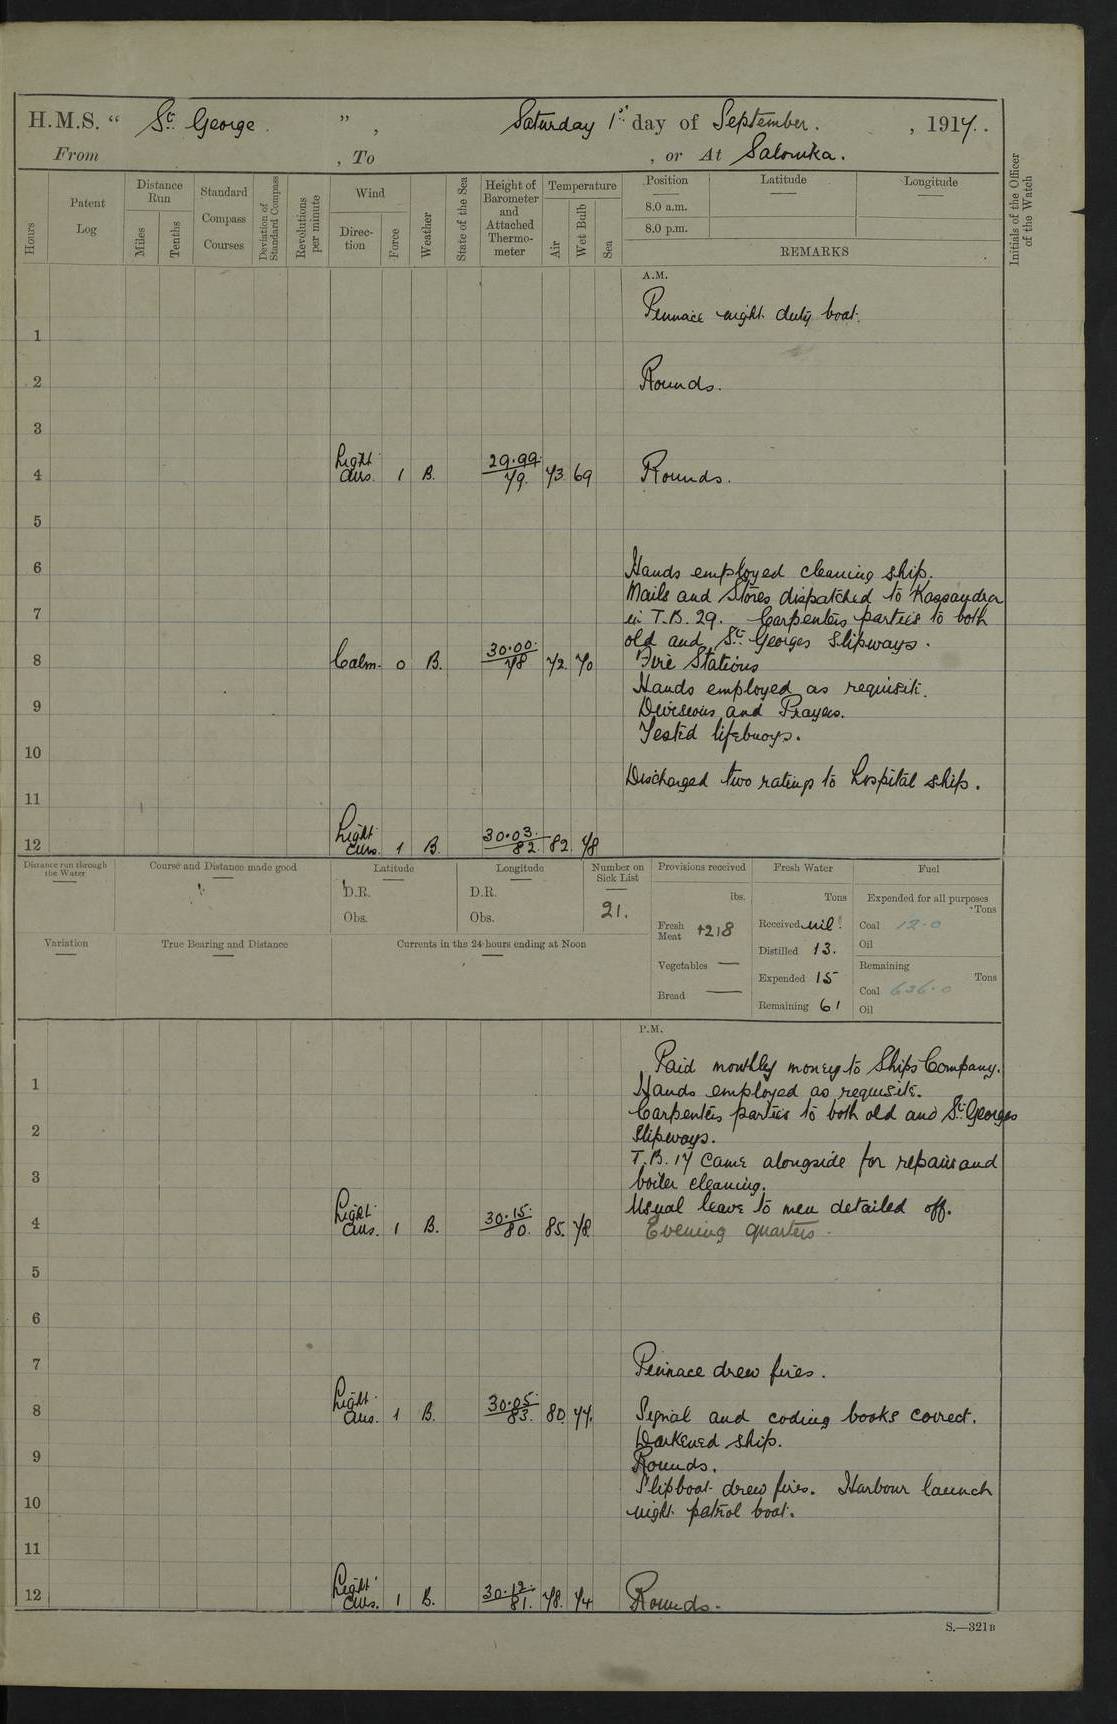 H.M.S. “ St. George. ” , Saturday 1st day of September. , 1917.
From , To , or At Salonika.
Hours
Patent Log
Distance Run
Miles
Tenths
Standard Compass Courses
Deviation of Standard Compass
Revolutions per minute
Wind
Direction
Force
Weather
State of the Sea
Height of Barometer and Attached Thermometer
Temperature
Air
Wet Bulb
Sea
Position
8.0 a.m.
8.0 p.m.
Latitude
Longitude
REMARKS
Initials of the Officer of the Watch
A.M.
Pinnace night duty boat.
1
2 Rounds.
3
4 Light airs. 1 B. 29.99 79. 73 69 Rounds.
5
6 Hands employed cleaning ship.
Mails and Stores dispatched to Kassandra
7 in T.B. 29. Carpenters parties to both
old and St. Georges Slipways.
8 Calm. 0 B. 30.00 78 72. 70 Fire Stations
Hands employed as requisite.
9 Divisions and Prayers.
Tested lifebuoys.
10
Discharged two ratings to hospital ship.
11
12 Light airs. 1 B. 30.03. 82. 82. 78
Distance run through the Water
Course and Distance made good
Latitude
D.R.
Obs.
Longitude
D.R.
Obs.
Number on Sick List
21.
Provisions received
lbs.
Fresh Meat 4218
Vegetables —
Bread —
Fresh Water
Tons
Received nil.
Distilled 13.
Expended 15
Remaining 61
Fuel
Expended for all purposes
Tons
Coal 12.0
Oil
Remaining
Tons
Coal 636.0
Oil
Variation
True Bearing and Distance
Currents in the 24 hours ending at Noon
P.M.
Paid monthly money to Ships Company.
1 Hands employed as requisite.
Carpenters parties to both old and St. Georges
2 Slipways.
T.B. 17 came alongside for repairs and
3 boiler cleaning.
Usual leave to men detailed off.
4 Light airs. 1 B. 30.15. 80. 85. 78. Evening quarters.
5
6
7 Pinnace drew fires.
8 Light airs. 1 B. 30.05. 83. 80. 77. Signal and coding books correct.
Darkened ship.
9 Rounds.
Slipboat drew fires. Harbour launch
10 night patrol boat.
11
12 Light airs. 1 B. 30.12. 81. 78. 74 Rounds.
S.—321B